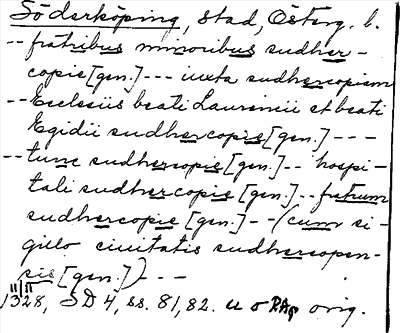 Söderköping, stad, Österg. l.
-- fratribus minoribus sudher-
copie [gen.] --- iuxta sudhercopiam
-- Ecclesiis beati Laurencii et beati
Egidii sudhercopie [gen.] ---
-- tunc sudhercopie [gen.] -- hospi-
tali sudhercopie [gen.] -- fratrum
sudhercopie [gen.] -- (cum si-
gillo ciuitatis sudhercopen-
sis [gen.]) ---
1328, SD 4, ss. 81, 82. u o RAp orig.